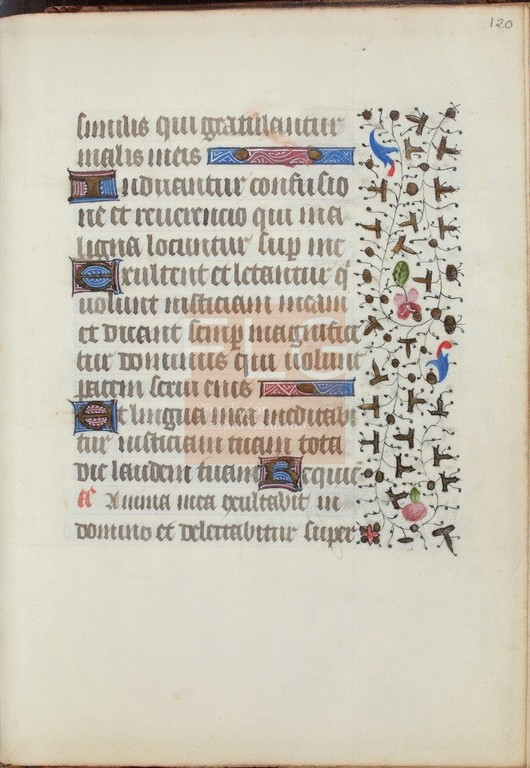 120
similis qui gratulantur
malis meis
Induantur confusio
ne et reuerencio qui ma
ligna locuntur sup me
Exultent et letantur q
uolunt iusticiam meam
et dicant semp magnifice
tur dominus qui uolunt
pacem serui eius
Et lingua mea meditabi
tur iusticiam tuam tota
die laudem tuam Requie
ā Anima mea exultabit in
domino et delectabitur super